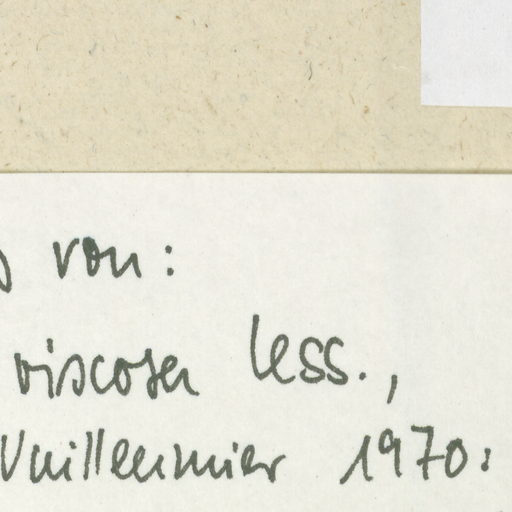 von:
viscosa Less.,
Vuilleumier 1970: